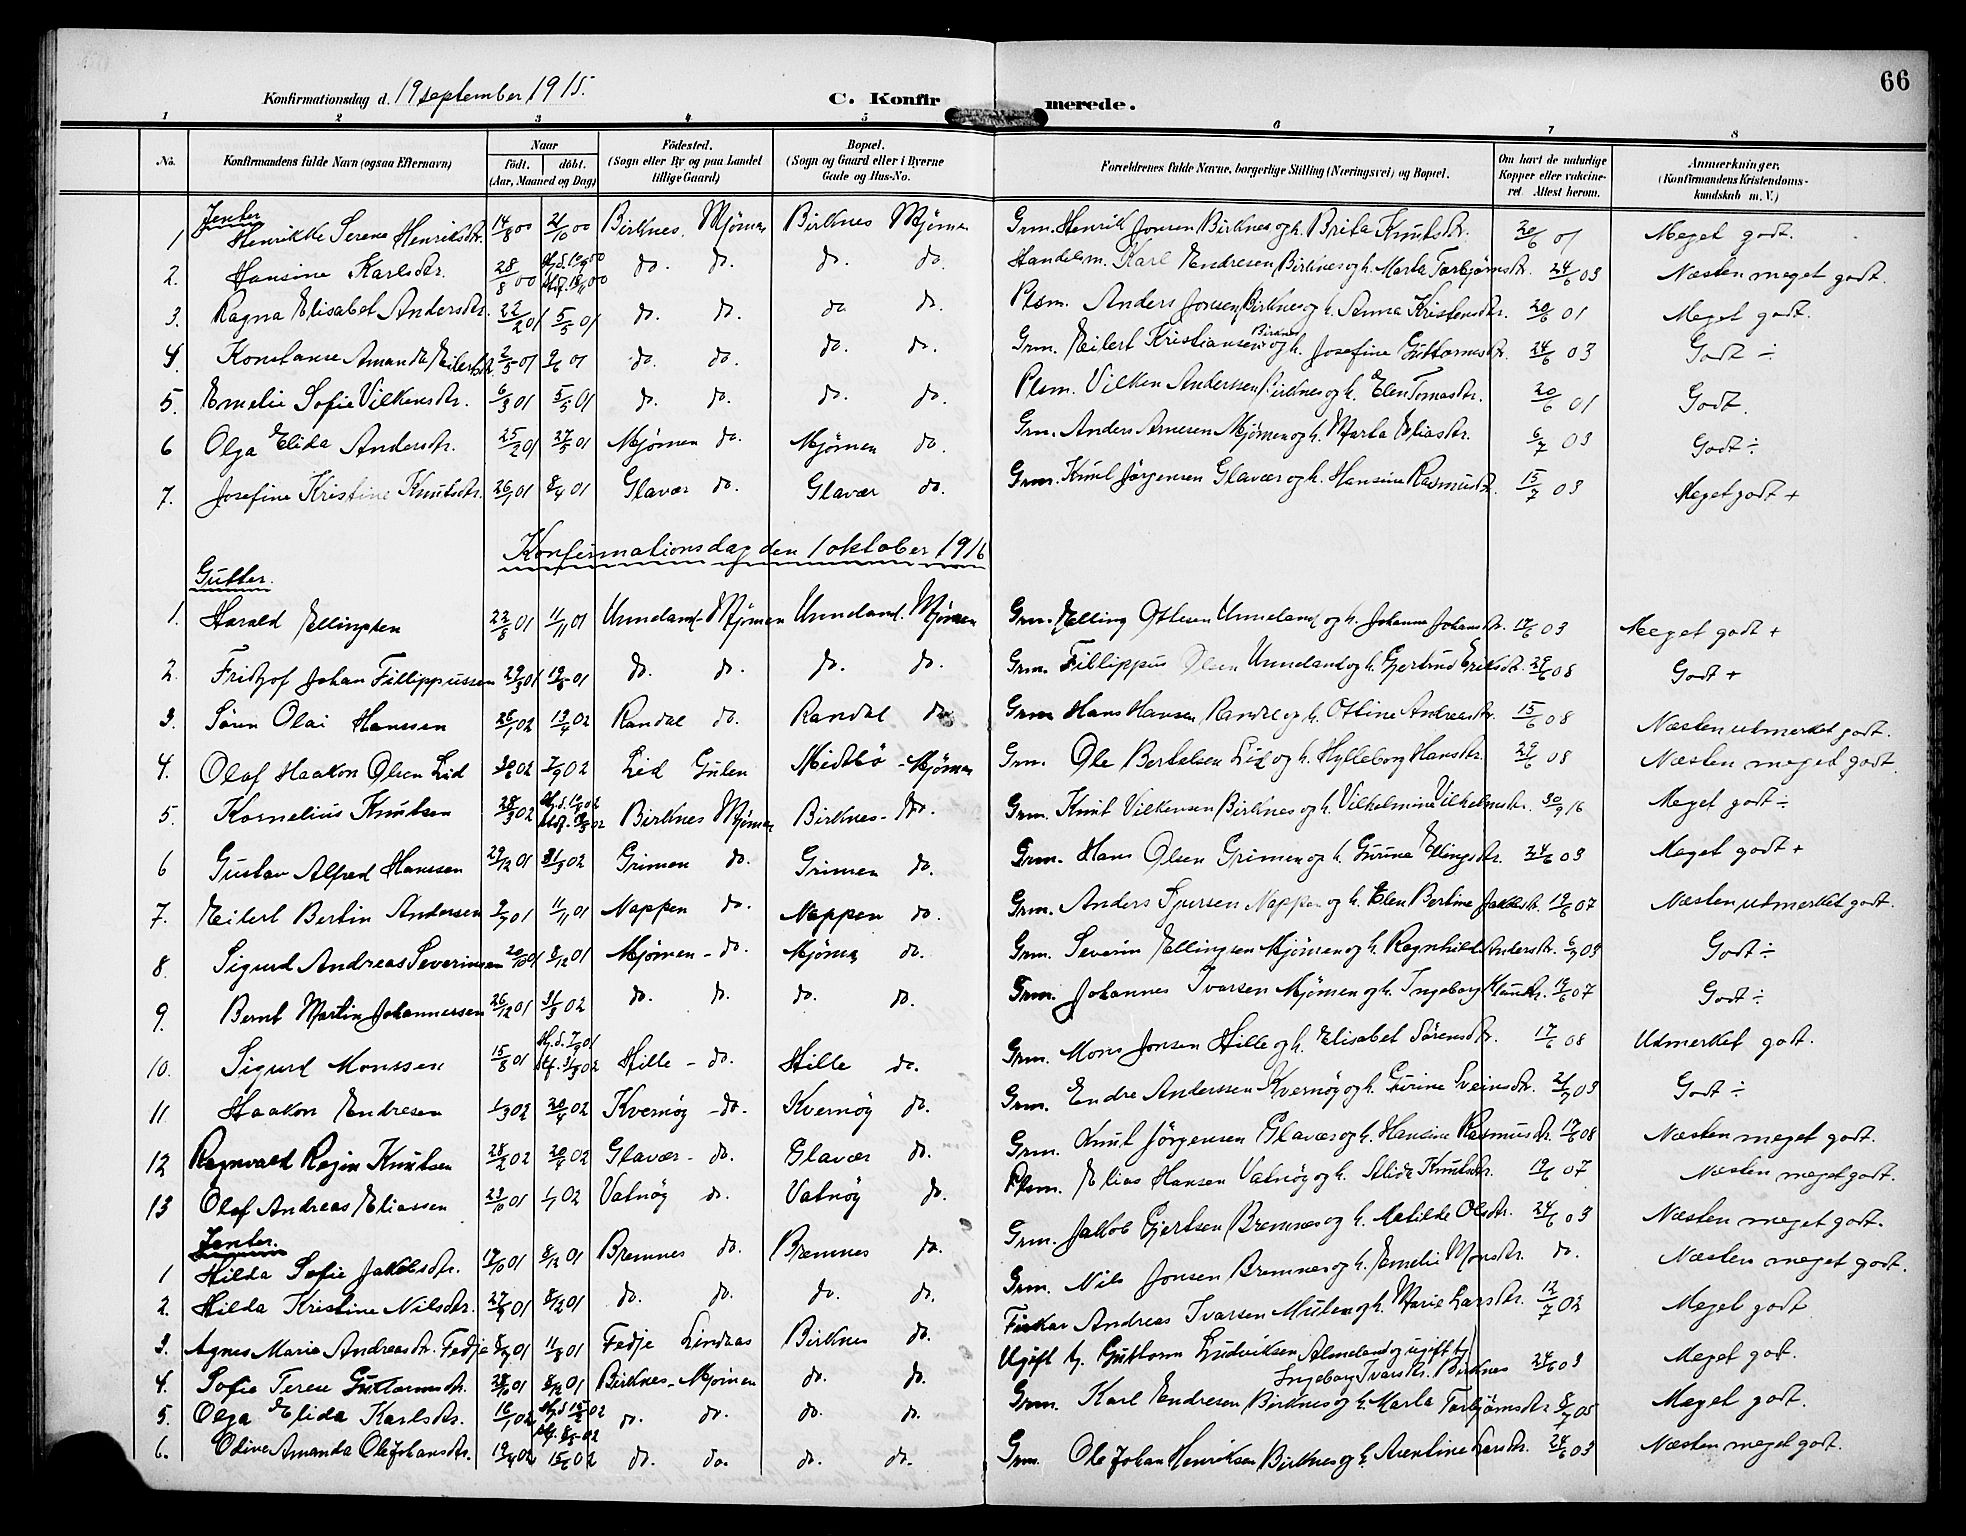 66
Konfirmationsdag d. 19 september 1915.
C. Konfirmerede.
1 2 3 4 5 6 7 8
No. Konfirmandens fulde Navn (ogsaa Efternavn) Naar födt. döbt. (Aar, Maaned og Dag) Födested. (Sogn eller By og paa Landet tillige Gaard) Bopæl. (Sogn og Gaard eller i Byerne Gade og Hus-No. Forældrenes fulde Navne, borgerlige Stilling (Næringsvei) og Bopæl. Om havt de naturlige Kopper eller vakcineret. Attest herom. Anmærkninger, (Konfirmandens Kristendomskundskab m. V.)
Jenter
1 Henrikke Serene Henriksdtr. 14/8 00 21/10 00 Birknes, Mjömen Birknes Mjömen Grm. Henrik Jonsen Birknes og h. Brita Knutsdtr. 20/6 01 Meget godt.
2. Hansine Karlsdtr. 28/8 00 do. do. do. do. Handelsm. Karl Endresen Birknes og h. Marta Torbjörnsdtr. 24/6 03 Næsten meget godt.
3. Ragna Elisabet Andersdtr. 22/2 01 5/5 01 do. do. do do. Plsm. Anders Jonsen Birknes og h. Anna Kristensdtr. 20/6 01 Meget godt.
4. Konstanse Amanda Eilertsdtr. 2/5 01 2/6 01 do. do. do. do. Grm. Eilert Kristiansen Birknes og h. Josefine Guttormsdtr. 24/6 03 Godt ÷
5. Emelie Sofie Vilkensdtr. 6/3 01 5/5 01 do. do. do. do. Plsm. Vilken Anderssen Birknes og h. Elen Tomasdtr. 20/6 01 Godt.
6 Olga Elida Andersdtr. 25/2 01 27/5 01 Mjömen do. Mjömen do. Grm. Anders Arnesen Mjömen og h. Marta Eliasdtr. 6/7 03 Godt ÷
7. Josefine Kristine Knutsdtr. 26/1 01 8/4 01 Glavær do. Glavær do. Grm. Knut Jörgensen Glavær og h. Hansine Rasmusdtr. 15/7 03 Meget godt +
Konfirmationsdag den 1 oktober 1916
Gutter.
1. Harald Ellingsen 22/8 01 11/11 01 Unneland - Mjömen Unneland. Mjömen Grm. Elling Ottesen Unneland og h. Johanne Johansdtr. 17/6 03 Meget godt +
2. Fridtjof Johan Fillippussen 29/3 01 do. do. do. do. Grm. Fillippus Olsen Unneland og h. Gjertrud Eriksdtr. 29/6 08 Godt +
3. Sören Olai Hanssen 28/1 02 13/4 02 Randal do. Randal do Grm Hans Hansen Randal og h. Ottine Andreasdtr. 15/6 08 Næsten utmerket godt.
4. Olaf Haakon Olsen Lid 30/6 02 7/9 02 Lid Gulen Midtbö - Mjömen Grm. Ole Bertelsen Lid og h. Hylleborg Hansdtr. 29/6 08 Næsten meget godt.
5. Kornelius Knutsen 28/3 02 Birknes Mjömen Birknes - do. Grm. Knut Vilkensen Birknes og h. Vilhelmine Vilhelmsdtr. 30/9 16 Meget godt ÷
6 Gustav Alfred Hanssen 29/12 01 31/3 02 Grimen do. Grimen do. Grm. Hans Olsen Grimen og h. Gurine Elingsdtr. 24/6 03 Meget godt +
7. Eilert Bertin Andersen 9/7 01 11/11 01 Nappen do. Nappen do. Grm. Anders Sjursen Nappen og h. Elen Bertine Jakobsdtr. 17/6 07 Næsten utmerket godt.
8. Sigurd Andreas Severinsen 20/10 01 8/12 01 Mjömen - do. Mjömen do. Grm. Severin Ellingsen Mjömen og h. Ragnhild Andersdtr. 6/7 03 Godt ÷
9. Bernt Martin Johannessen 26/12 01 31/3 02 do. do. do. do. Grm. Johannes Ivarsen Mjömen og h. Ingeborg 17/6 07 Godt ÷
10. Sigurd Monssen 15/8 01 Hj.d. 7/9 01 st.f. 31/3 02 Hille - do. Hille do. Grm. Mons Jonsen Hille og h. Elisabet Sörensdtr. 17/6 08 Udmerket godt.
11 Haakon Endresen 1/3 02 20/4 02 Kvernöy - do. Kvernöy do. Grm. Endre Anderssen Kvernöy og h. Gurine Sveinsdtr. 21/7 03 Godt ÷
12 Ragnvald Regin Knutsen 28/2 02 20/4 02 Glavær - do. Glavær do. Grm. Knut Jörgensen Glavær og h. Hansine Rasmusdtr. 17/6 08 Næsten meget godt.
13 Olaf Andreas Eliassen 23/10 01 1/1 02 Vatnöy do. Vatnöy do. Plsm. Elias Hansen Vatnöy og h. Knutsdtr. 19/6 07 Næsten meget godt.
Jenter.
1 Hilda Sofie Jakobsdtr. 17/10 01 8/12 01 Bremnes do. Bremnes do. Grm. Jakob Gjertsen Bremnes og h. Matilde Olsdtr. 24/6 03 Næsten meget godt.
2. Hilda Kristine Nilsdtr. 27/9 01 8/12 01 do. do. do. do. Grm. Nils Jonsen Bremnes og h. Emelie Monsdtr. do. Næsten meget godt.
3. Agnes Marie Andreasdtr. Fedje 8/7 01 11/8 01 Fedje Lindaas Birknes do. Fisker Andreas Ivarsen Multen og h. Marie Larsdtr. 12/7 02 Meget godt
4. Sofie Terese Guttormsdtr. 28/10 01 8/12 01 Birknes - Mjömen do. do. Ugift Guttorm Ludviksen Almeland og ugift Ingeborg Ivarsdtr. Birknes 24/6 03 Meget godt.
5. Olga Elida Karlsdtr. 16/1 02 do. do. do. do. Grm. Karl Endresen Birknes og h. Marta Torbjörnsdtr 8/7 05 Meget godt.
6. Odine Amanda Ole Johansdtr. 19/4 02 15/6 02 do. do. do. do. Grm. Ole Johan Henriksen Birknes og h. Arentine Larsdtr. 24/6 03 Næsten meget godt.